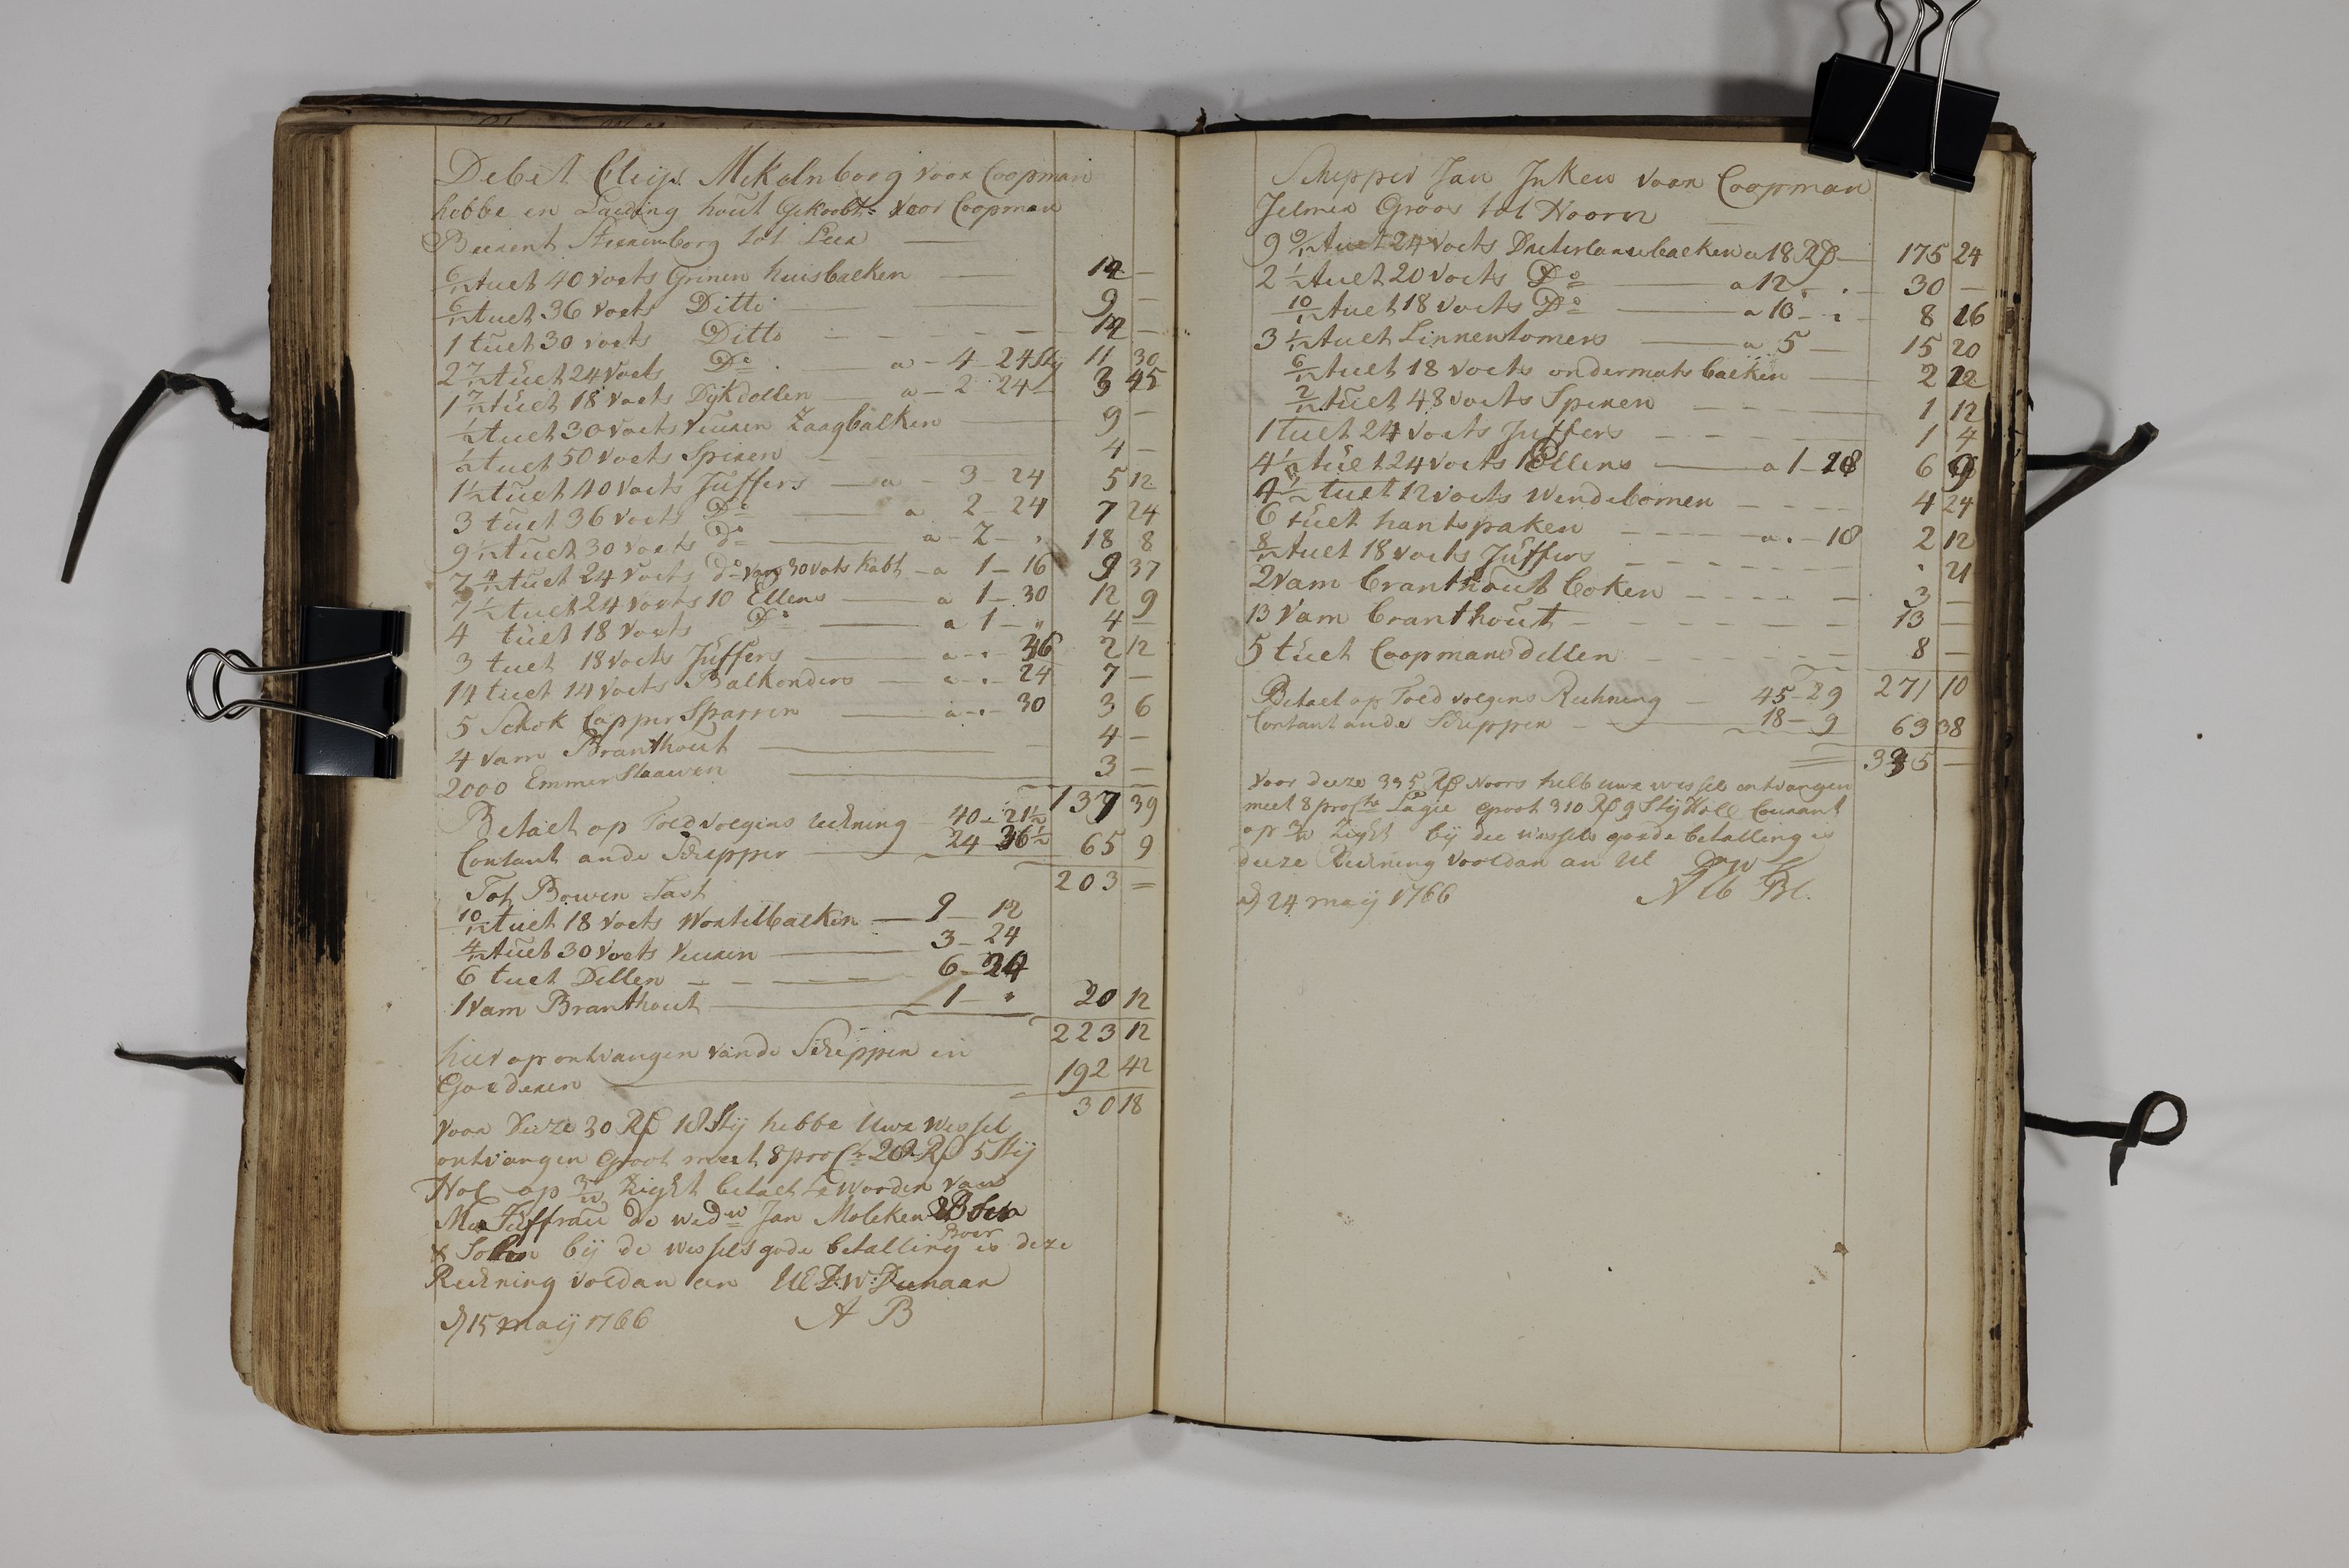 Debet Cleijs Mekelnborg voor Coopman
hebbe en Laeding hout Gekooht voor Coopman
Beerent Steenenborg tot Leer
6/12 tuet 40 voets Grinen huisbalken — 14 —
6/12 tuet 36 voets Ditto — 9 —
1 tuet 30 voets Ditto — 14 —
2 7/12 tuet 24 voets Do a — 4 — 24 Stij 11 30
1 7/12 tuet 18 voets Dijkdollen — a — 2 24 — 3 45
1/2 tuet 30 voets vuuren Zaagbalken 9 —
1/2 tuet 50 voets Spiren 4 —
1 1/2 tuet 40 voets Juffers — a — 3 — 24 5 12
3 tuet 36 voets Do — a 2 — 24 7 24
9 1/12 tuet 30 voets do — a — 2 — 18 8
7 4/12 tuet 24 voets do van 30 vots kabt — a 1 — 16 9 37
7 1/2 tuet 24 voets 10 Ellens — a 1 — 30 12 9
4 tuet 18 voets Do — a 1 — " 4 —
3 tuet 18 voets Juffers — a - . - 36 2 12
14 tuet 14 voets Balkonders — a . — 24 7 —
5 Schok Capper Sparren — a - . - 30 3 6
4 vam Branthout — 4 —
2000 Emmer Staawen — 3 —
137 39
Betaelt op Toed volgens reekning — 40 — 21 1/2
Contant ande Schepper — 24 36 1/2 65 9
203 =
Tot Bowen Last
10/12 tuet 18 voets Wortelbalken — 9 — 12
4/12 tuet 30 voets vuuren — 3 — 24
6 tuet Dellen — 6 — 24
1 vam Branthout — 1 — . 20 12
223 12
hier op ontvangen vande Scheppen in
Goederen — 192 42
30 18
voor Deeze 30 Rß 18 Stij hebbe Uwe wessel
ontvangen Groot meet 8 pro Ct 28 Rß 5 Stij
Hol op 3/w Zight betaelt te worden van
Me Juffrau de wedw Jan Moleken Boer
& Sohn bij de wessels gode betalling is deze
Reekning voldan an UE D: W: Dienaar
dd 15 maij 1766 A B
Schepper Jan Jnken voor Coopman
Jelmer Groos tot Hoorn
9 9/12 tuet 24 voets Duterlansebalken a 18 Rß — 175 24
2 1/2 tuet 20 voets Do — a 12 — . — 30 —
10/12 tuet 18 voets Do — a 10 — . 8 16
3 1/12 tuet Linnentomers — a 5 — 15 20
6/12 tuet 18 voets ondermats balken — 2 12
2/12 tuet 48 voets Spiren — 1 12
1 tuet 24 voets Juffers — 1 4
4 1/2 tuet 24 voets 10 Ellens — a 1 — 18 6 9
4 1/2 tuet 12 voets Wendebomen — 4 24
6 tuet hantspaken — a . — 18 2 12
8/12 tuet 18 voets Juffers — . 21
2 vam branthout boken — 3 —
13 vam branthout — 13 —
5 tuet Coopmans dellen — 8 —
271 10
Betaet op Toed volgens Rechning — 45 — 29
Contant ande Scheppen — 18 — 9 63 38
335 —
Voor deeze 335 Rß Noors heb uwe wessels ontvangen
meet 8 pro Cto Lagie groot 310 Rß 9 Stij Holl Courant
op 3/w Zight bij dee wessels goede betalling is
deeze Reekning voldan an UE DW
dd 24 maij 1766 Alb Bl.